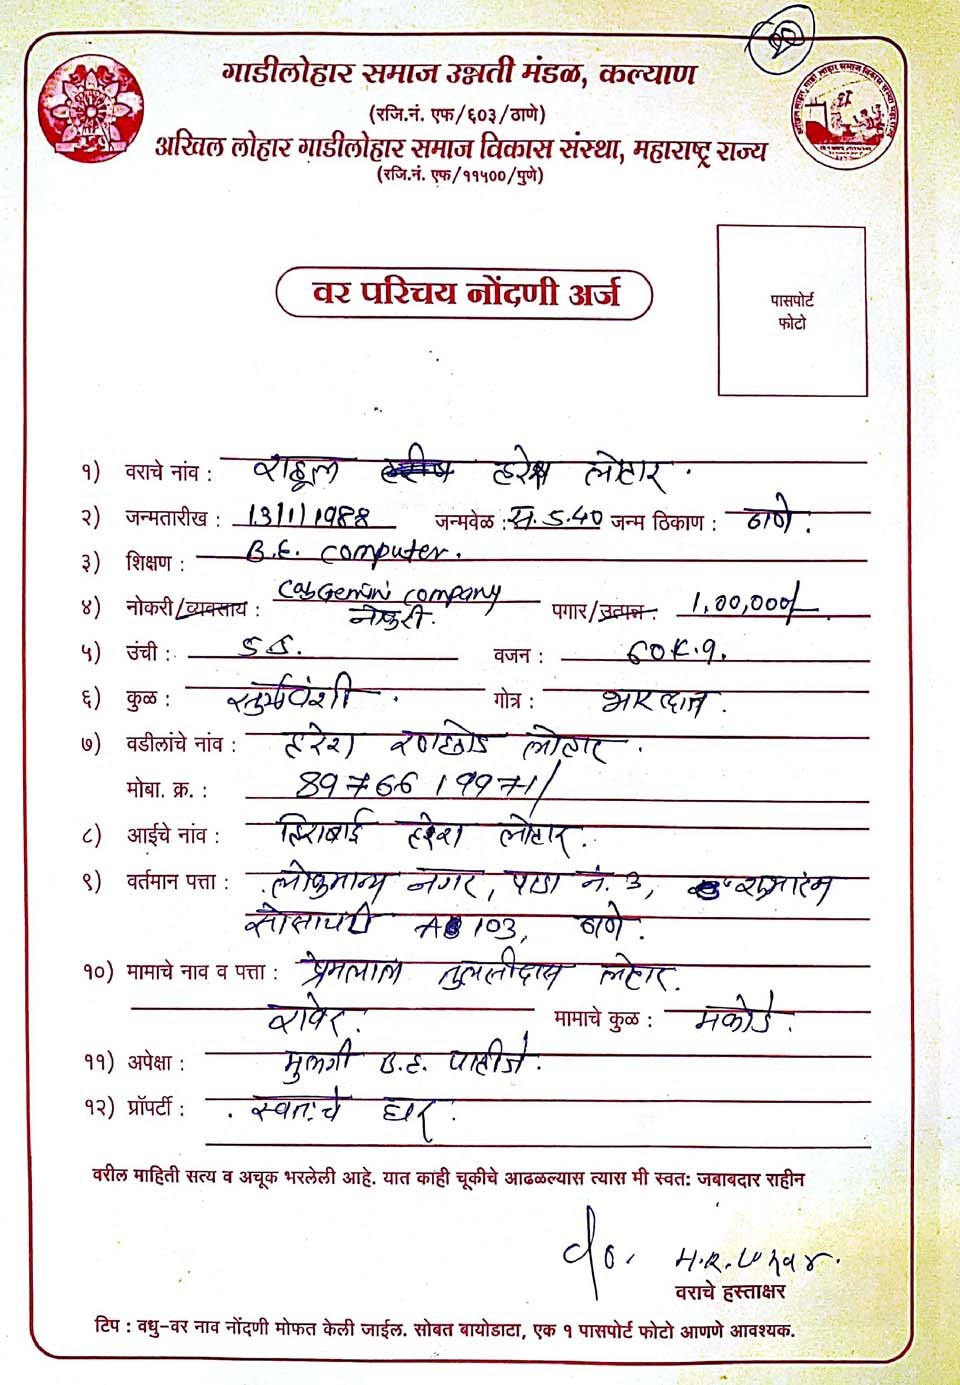 गाडीलोहार समाज उन्नती मंडळ, कल्याण
(रजि.नं. एफ/६०३/ठाणे)
अखिल लोहार गाडीलोहार समाज विकास संस्था, महाराष्ट्र राज्य
(रजि.नं. एफ/११५००/पुणे)
पासपोर्ट
फोटो
वर परिचय नोंदणी अर्ज
१) वराचे नांव : राहूल हरेश लोहार.
२) जन्मतारीख : 13/1/1988 जन्मवेळ : स. 5.40 जन्म ठिकाण : ठाणे.
३) शिक्षण : B.E. Computer.
४) नोकरी/व्यवसाय : CapGemini Company नोकरी. पगार/उत्पन्न : 1,00,000/-
५) उंची : 5.5. वजन : 60 K.g.
६) कुळ : सुर्यवंशी. गोत्र : भारद्वाज.
७) वडीलांचे नांव : हरेश रणछोड लोहार.
मोबा. क्र. : 8976619971/
८) आईचे नांव : हिराबाई हरेश लोहार.
९) वर्तमान पत्ता : लोकमान्य नगर, पाडा नं. 3, शुभारंभ
सोसायटी 103, ठाणे.
१०) मामाचे नाव व पत्ता : प्रेमलाल तुलसीदास लोहार.
रावेर. मामाचे कुळ : मकोडे.
११) अपेक्षा : मुलगी B.E. पाहीजे.
१२) प्रॉपर्टी : स्वतःचे घर.
वरील माहिती सत्य व अचूक भरलेली आहे. यात कांही चूकीचे आढळल्यास त्यास मी स्वत: जबाबदार राहीन
H.R. Lohar.
वराचे हस्ताक्षर
टिप : वधु-वर नाव नोंदणी मोफत केली जाईल. सोबत बायोडाटा, एक १ पासपोर्ट फोटो आणणे आवश्यक.